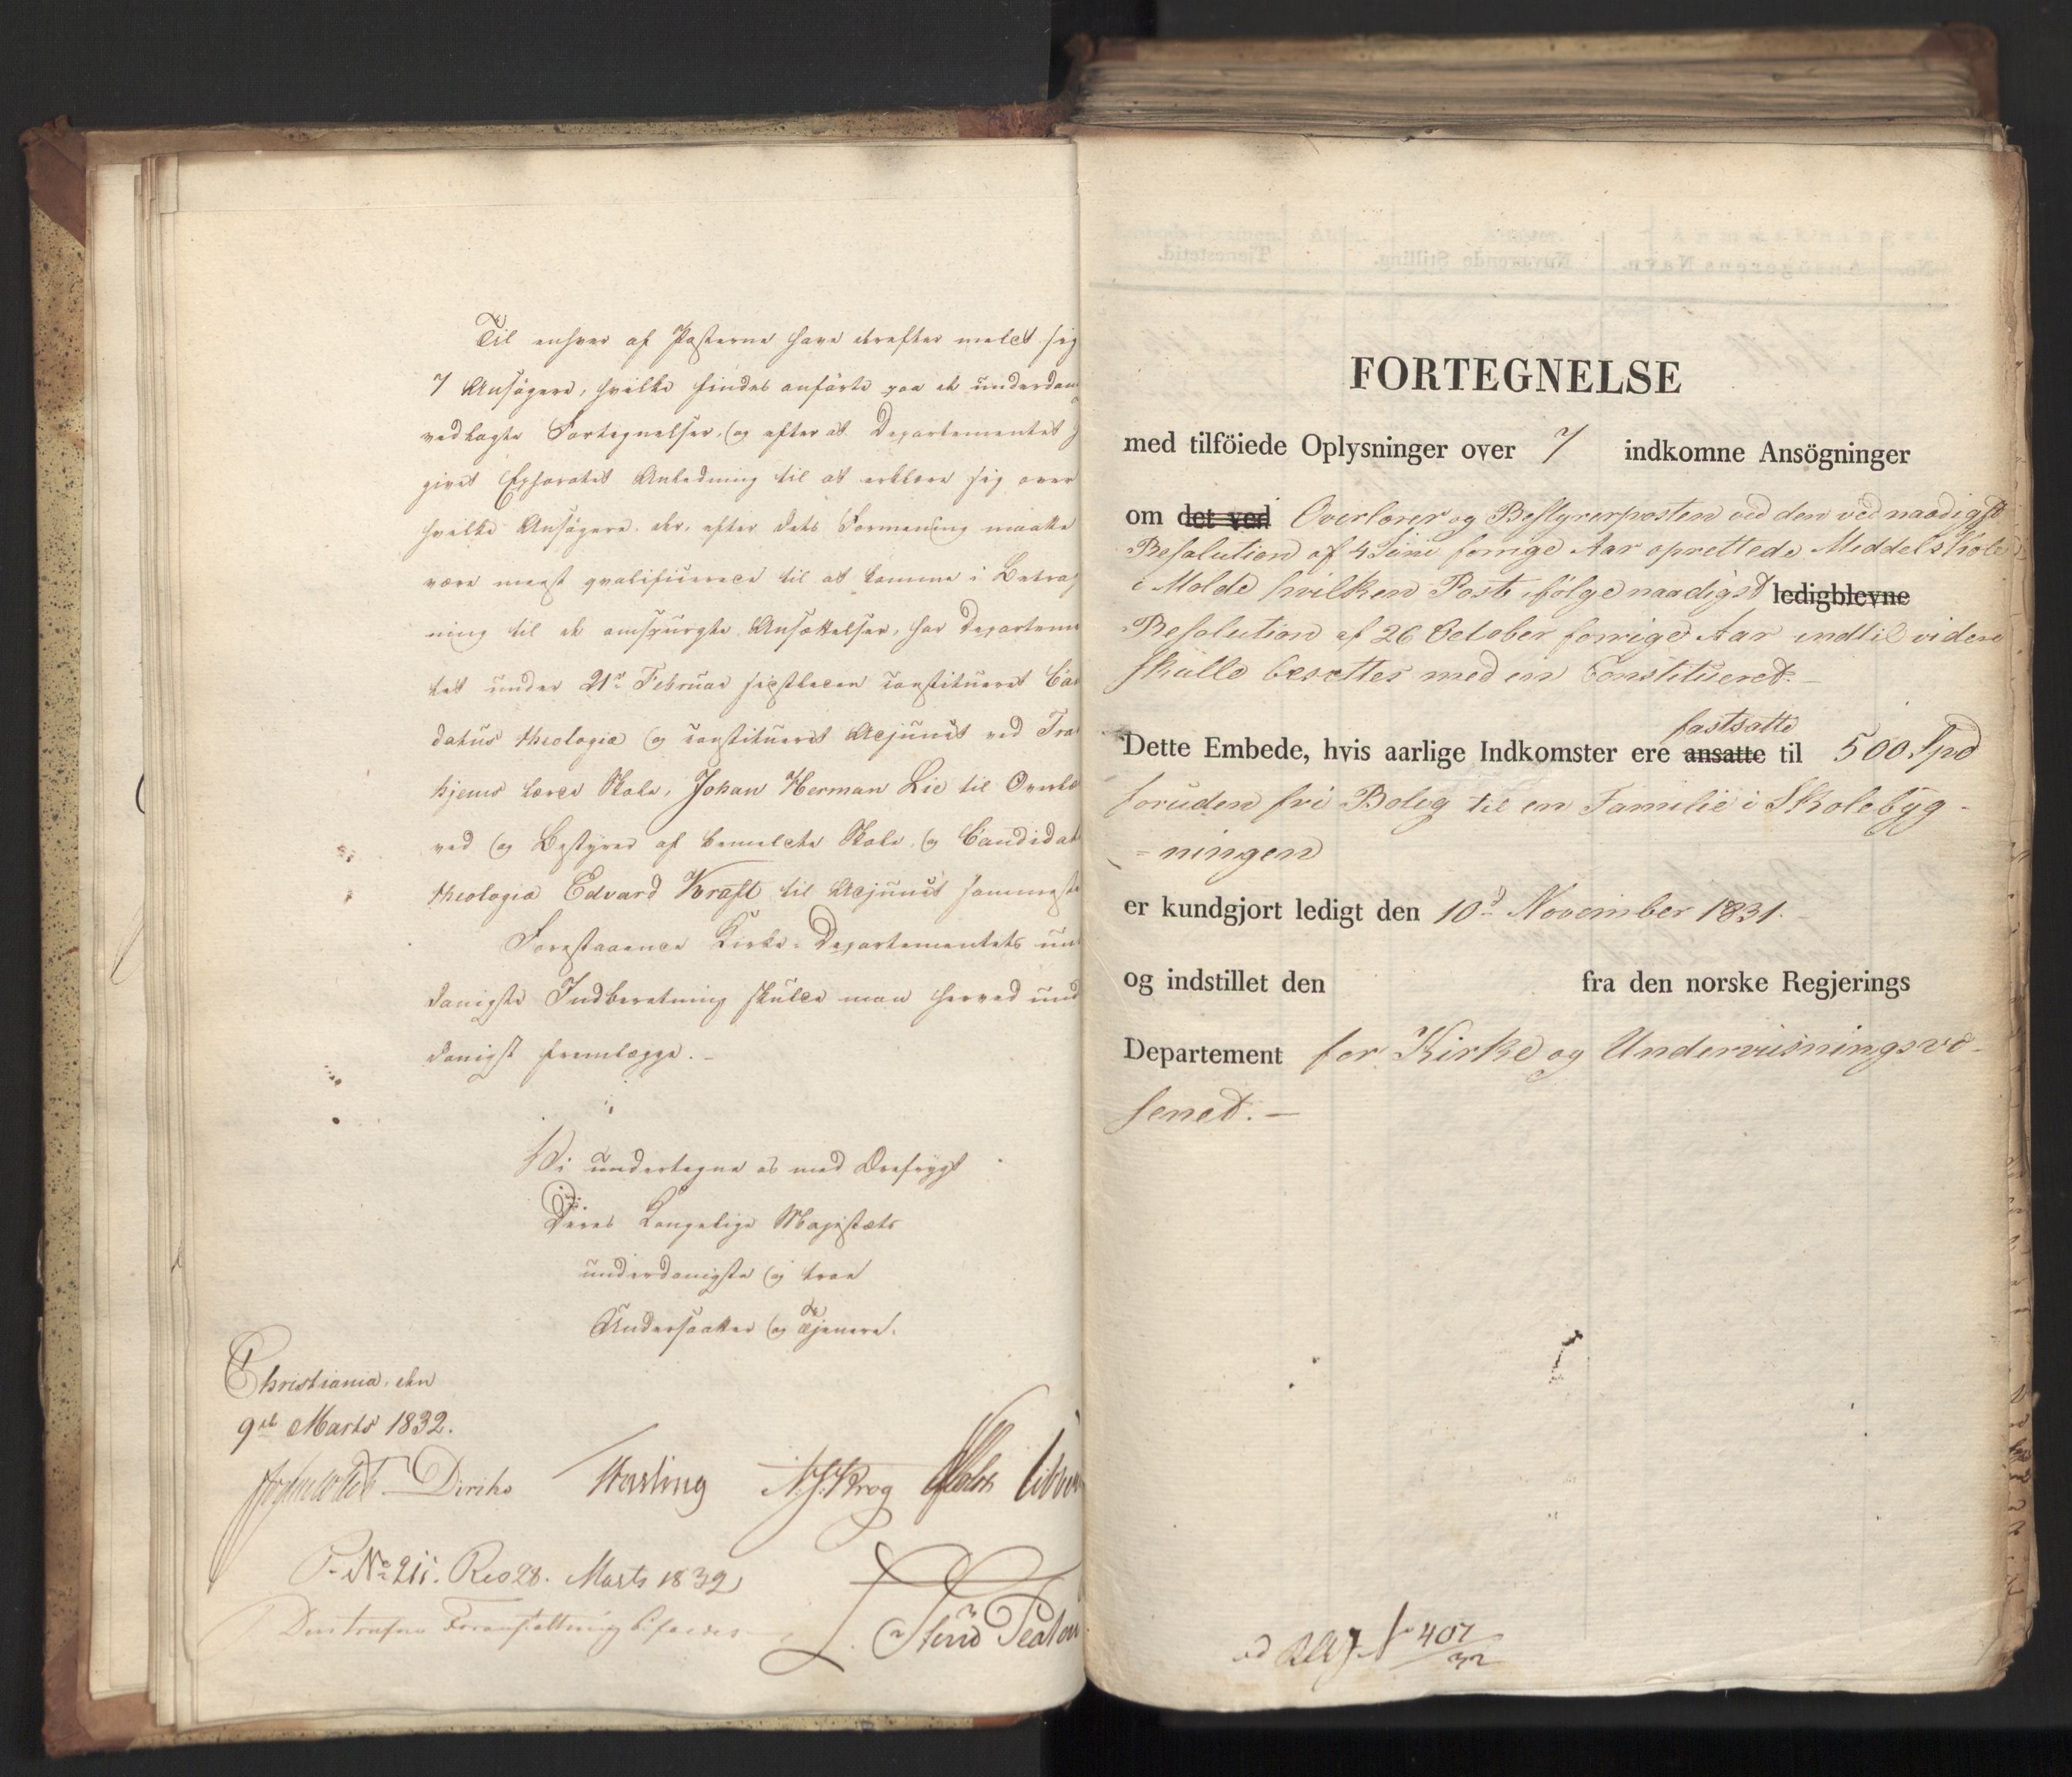 Til enhver af Posterne have derefter meldt sig
7 Ansögere, hvilke findes anförte paa de underdan
vedlagte Fortegnelser, og efter at Departementet
givet Ephoratet Anledning til at erklære sig over
hvilke Ansögere, der, efter dets Formening maatte
være meest qvalificerede til at komme i Betrag
ning til de omspurgte Ansættelser, har Departeme
tet under 21de Februar sidstleden constitueret Can
datus theologiæ og constitueret Adjunct ved Tro
hjems lærde Skole, Johan Herman Lie til Overlæ
ved og Bestyrer af bemeldte Skole, og Candidat
theologiæ Edvard Kraft til Adjunct sammeste
Forestaaende Kirke-Departementets un
danigste Indberetning skulde man herved und
danigst fremlægge. –
Vi undertegne os med Ærefrygt
Deres Kongelige Majestæts
underdanigste og troe
Undersaatter og Tjenere.
Christiania, den
9de Marts 1832.
Diriks N. J. Krog
P. No 211. Res 28. Marts 1832
Den trufne Foranstaltning bifaldes
FORTEGNELSE
med tilföiede Oplysninger over 7 indkomne Ansögninger
om det ved Overlærer og Bestyrerposten ved den ved naadigst
Resolution af 4 Juni forrige Aar oprettede Middelskole
i Molde hvilken Post ifølge naadigst ledigblevne
Resolution af 26 October forrige Aar indtil videre
skulle besættes med en Constitueret. –
fastsatte
Dette Embede, hvis aarlige Indkomster ere ansatte til 500 Spd
foruden fri Bolig til en Familie i Skolebyg-
-ningen
er kundgjort ledigt den 10d November 1831. –
og indstillet den fra den norske Regjerings
Departement for Kirke og Underviisningsvæ-
senet. –
ad No 407/32